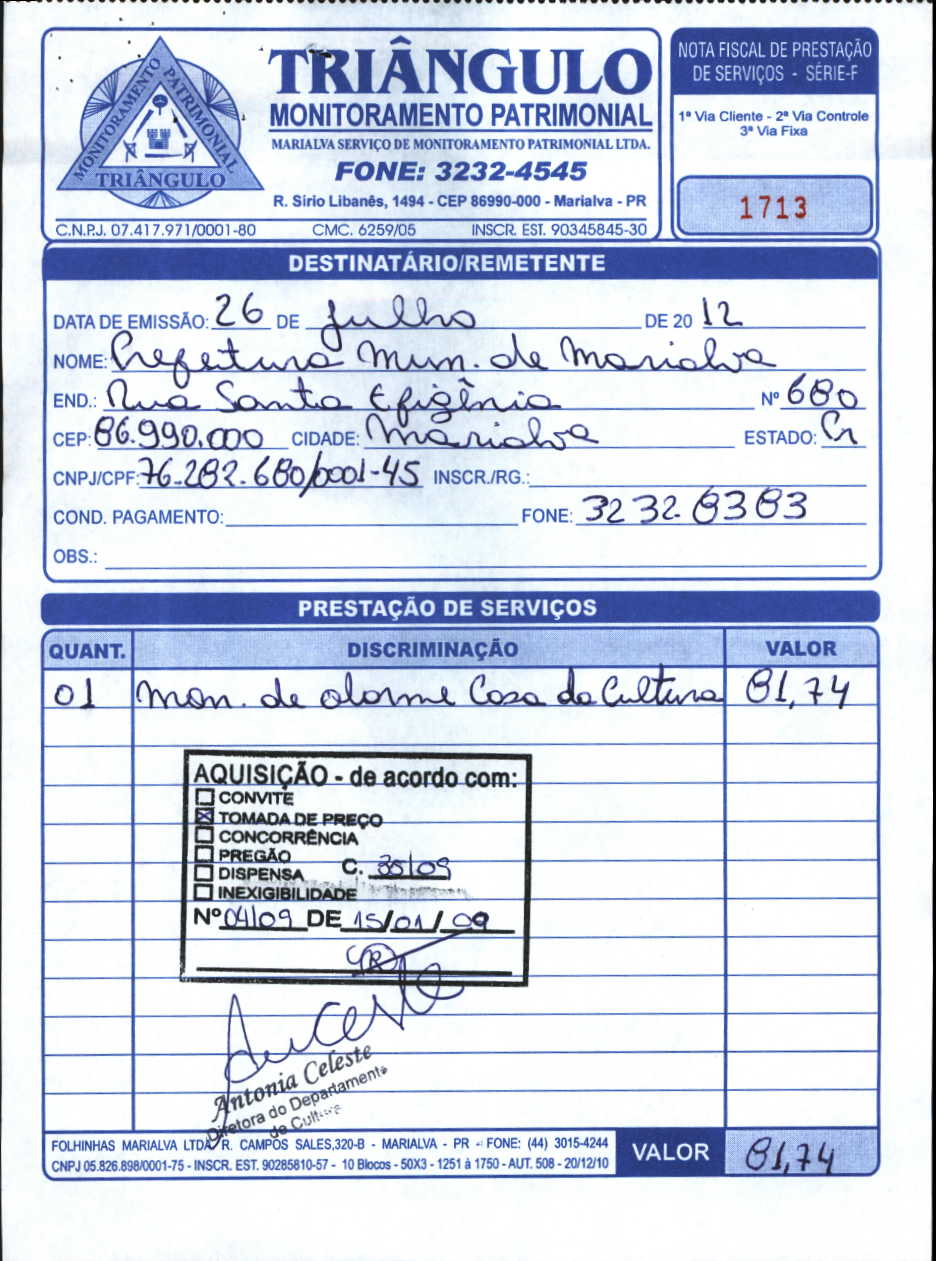 MONITORAMENTO PATRIMONIAL
TRIÂNGULO
TRIÂNGULO
MONITORAMENTO PATRIMONIAL
MARIALVA SERVIÇO DE MONITORAMENTO PATRIMONIAL LTDA.
FONE: 3232-4545
R. Sírio Libanês, 1494 - CEP 86990-000 - Marialva - PR
C.N.P.J. 07.417.971/0001-80 CMC. 6259/05 INSCR. EST. 90345845-30
NOTA FISCAL DE PRESTAÇÃO
DE SERVIÇOS - SÉRIE-F
1ª Via Cliente - 2ª Via Controle
3ª Via Fixa
1713
DESTINATÁRIO/REMETENTE
DATA DE EMISSÃO: 26 DE Julho DE 2012
NOME: Prefeitura Mun. de Marialva
END.: Rua Santa Efigênia Nº 680
CEP: 86.990.000 CIDADE: Marialva ESTADO: Pr
CNPJ/CPF: 76.282.680/0001-45 INSCR./RG.:
COND. PAGAMENTO: FONE: 3232-8383
OBS.:
PRESTAÇÃO DE SERVIÇOS
QUANT. DISCRIMINAÇÃO VALOR
01 Mon. de alarme Casa da Cultura 81,74
AQUISIÇÃO - de acordo com:
CONVITE
TOMADA DE PREÇO
CONCORRÊNCIA
PREGÃO
DISPENSA C. 38/09
INEXIGIBILIDADE
Nº 04/09 DE 15/01/09
Antonia Celeste
Diretora do Departamento
de Cultura
FOLHINHAS MARIALVA LTDA R. CAMPOS SALES,320-B - MARIALVA - PR - FONE: (44) 3015-4244
CNPJ 05.826.898/0001-75 - INSCR. EST. 90285810-57 - 10 Blocos - 50X3 - 1251 à 1750 - AUT. 508 - 20/12/10
VALOR 81,74